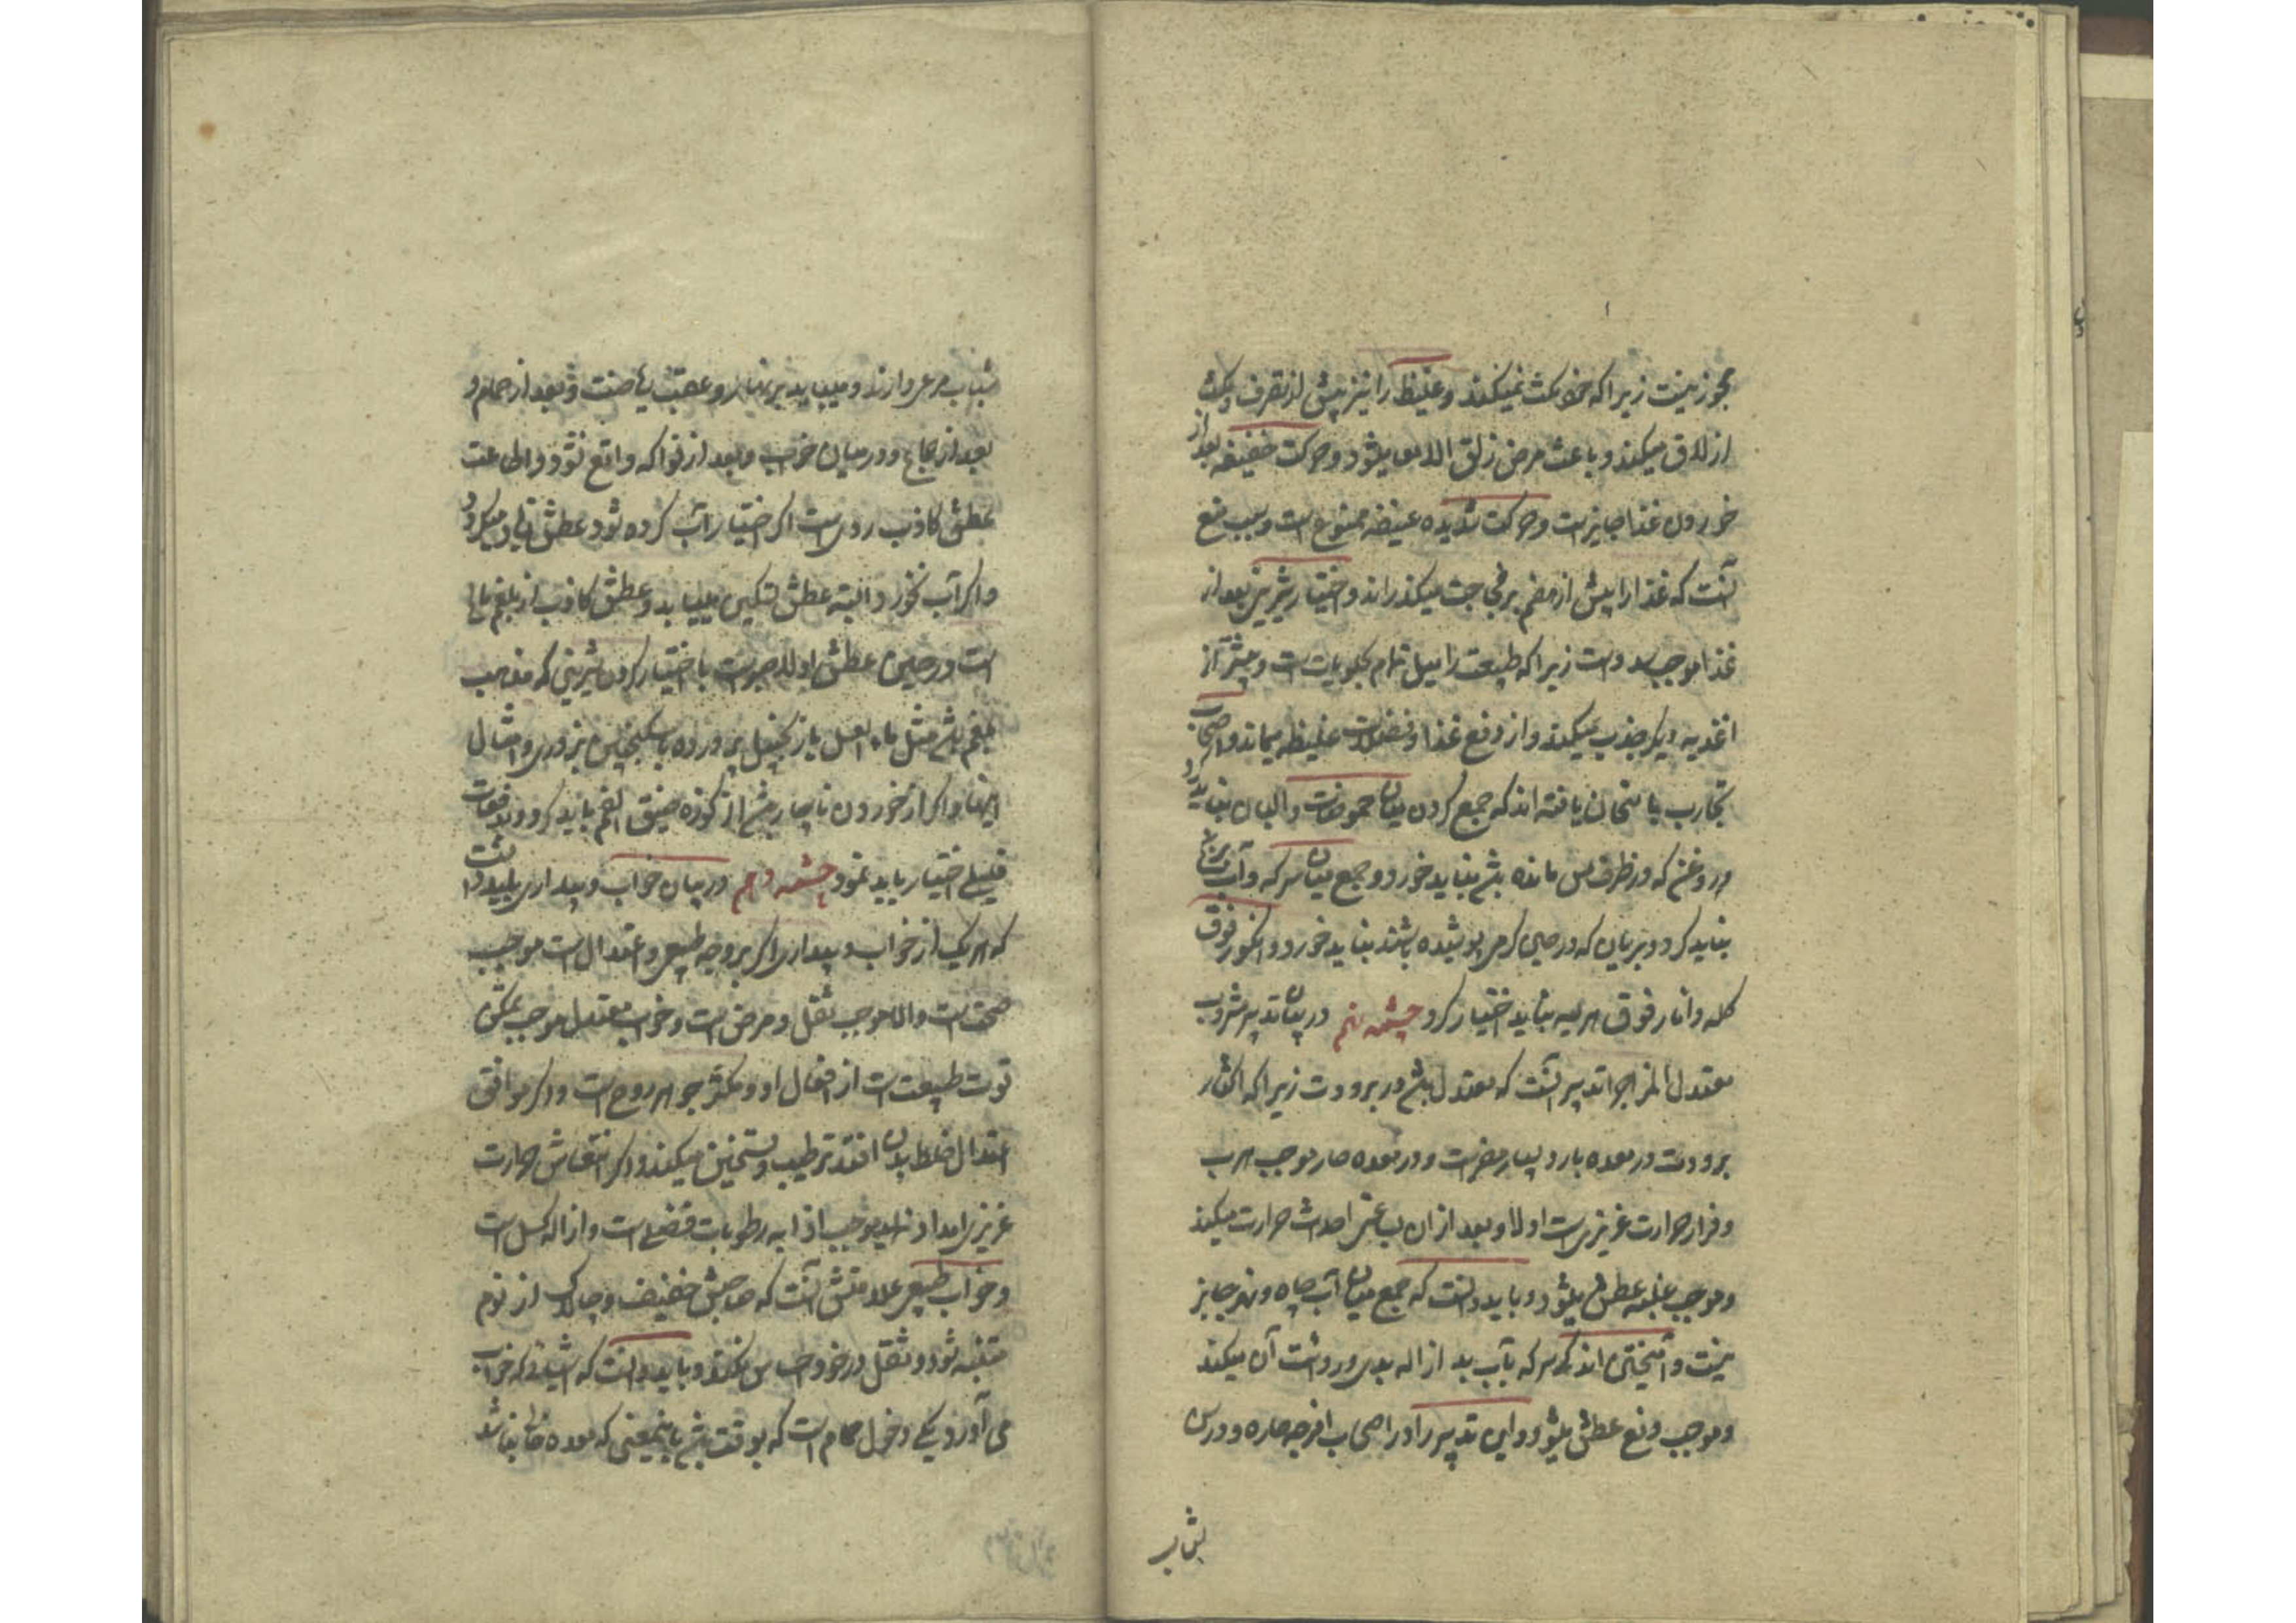 مجوز نیست زیرا که خود مکث نمیکند و غلیظ را نیز پیش از تصرف و مکث
ازلاق میکند و باعث مرض زلق الامعا میشود و حرکت خفیفه بعد از
خوردن غذا جایزست و حرکت شدیده عنیفه ممنوع است و سبب منع
آنست که غذا را پیش از هضم بر فجاجت میکذراند و اختیار شیرینی بعد از
غذا موجب سدد است زیرا که طبیعت را میل تمام بحلویات است و پیشتر از
اغذیه دیکر جذب میکند و از دفع غذا و فضلات غلیظه میماند و اصحاب
تجارب بامتحان یافته اند که جمع کردن میان حموضات و البان نباید کرد
و روغن که در ظرف مس مانده باشد نباید خورد و جمع میان سرکه و آب برنج
نباید کرد و بریان که در حین کرمی پوشیده باشند نباید خورد و انکور فوق
کله و انار فوق هریسه نباید اختیار کرد چشمه نهم در بیان تدبیر مشروب
معتدل المزاج را تدبیر آنست که معتدل باشد در برودت زیرا که اکثار
برودت در معده بارد بسیار مضرست و در معده حار موجب هرب
و فرار حرارت غریزی است اولا و بعد از ان احداث حرارت میکند
و موجب غلبه عطش میشود و باید دانست که جمع میان آب چاه و نهر جایز
نیست و آمیختن اندک سرکه بآب بد ازاله بدی و ردائت آن میکند
و موجب دفع عطش میشود و این تدبیر را در اصحاب امزجه حاره و در سن
شباب
شباب مرعی دارند و میباید بر نهار و عقب ریاضت و بعد از حمام و
بعد از جماع و در میان خواب و بعد از فواکه واقع نشود و اطاعت
عطش کاذب ردی است اکر اختیار آب کرده شود عطش میکردد
و اکر آب نخورد البته عطش تسکین مییابد و عطش کاذب از بلغم مالح
است و در حین عطش اولا صبرست یا اختیار کردن شیرینی که مذهب
بلغم باشد مثل ماء العسل یا زنجبیل پرورده یا سکنجبین بزوری و امثال
اینها و اکر از خوردن ناچار باشد از کوزه ضیق الفم باید کرد و بدفعات
قلیلی اختیار باید نمود چشمه دهم در بیان خواب و بیداری بباید دانست
که هریک از خواب و بیداری اکر بر وجه طبیعی و اعتدال است موجب
صحت است و الا موجب ثقل و مرض است و خواب معتدل موجب تمکن
قوت طبیعت است از افعال او و مکثر جوهر روح است و اکر موافق
اعتدال خلط بدن افتد ترطیب و تسخین میکند و اکر انتعاش حرارت
غریزی امداد نماید موجب اذابه رطوبات فضلی است و ازاله کسل است
و خواب طبیعی علامتش آنست که صاحبش خفیف و چالاک از نوم
متنبه شود و ثقل در خود احساس نکند و باید دانست که اشیاء که خواب
می آورد یکی دخول حمام است که بوقت باشد باینمعنی که معده خالی نباشد